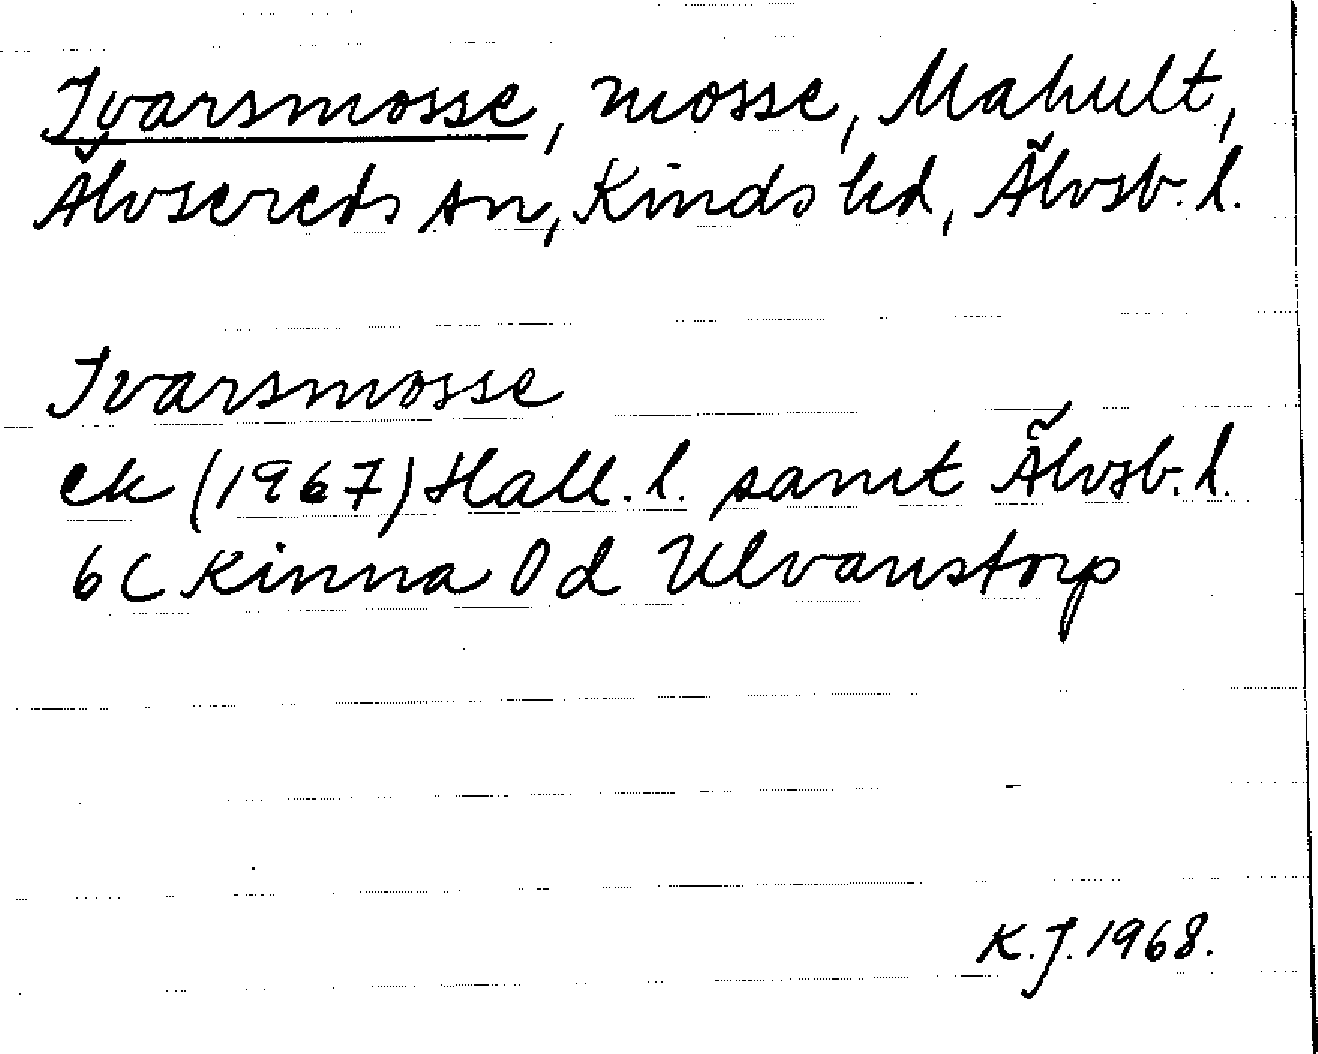 Ivarsmosse, mosse, Mahult,
Älvsereds sn, Kinds hd, Älvsb. l.
Ivarsmosse
ek (1967) Hall. l. samt Älvsb. l.
6C Kinna 0d Ulvanstorp
K.J. 1968.